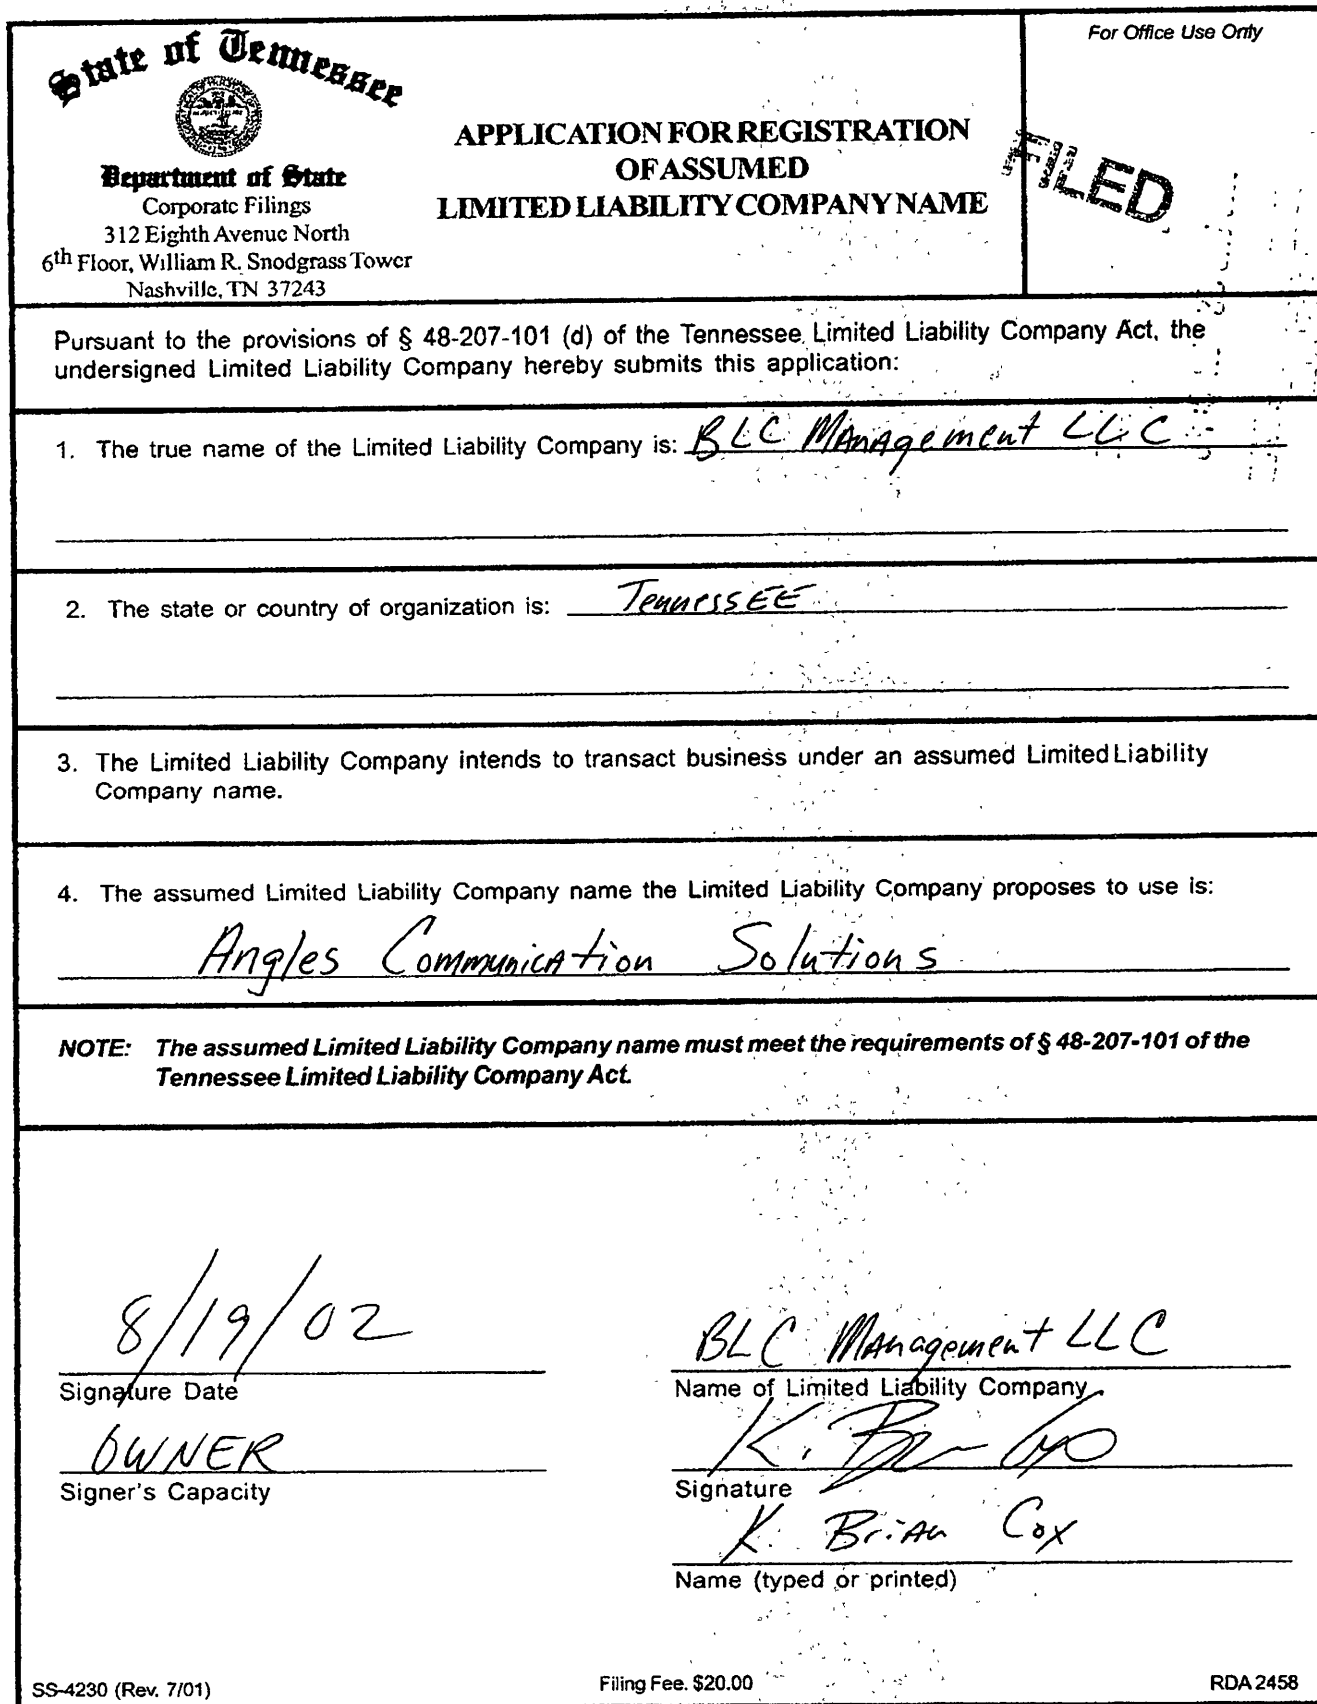 State of Tennessee
Department of State
Corporate Filings
312 Eighth Avenue North
6th Floor, William R. Snodgrass Tower
Nashville, TN 37243
APPLICATION FOR REGISTRATION
OF ASSUMED
LIMITED LIABILITY COMPANY NAME
For Office Use Only
FILED
Pursuant to the provisions of § 48-207-101 (d) of the Tennessee Limited Liability Company Act, the
undersigned Limited Liability Company hereby submits this application:
1. The true name of the Limited Liability Company is: BLC Management LLC
2. The state or country of organization is: TennessEE
3. The Limited Liability Company intends to transact business under an assumed Limited Liability
Company name.
4. The assumed Limited Liability Company name the Limited Liability Company proposes to use is:
Angles Communication Solutions
NOTE: The assumed Limited Liability Company name must meet the requirements of § 48-207-101 of the
Tennessee Limited Liability Company Act.
8/19/02
Signature Date
OWNER
Signer's Capacity
BLC Management LLC
Name of Limited Liability Company
K. Brian Cox
Signature
K. Brian Cox
Name (typed or printed)
SS-4230 (Rev. 7/01)
Filing Fee. $20.00
RDA 2458